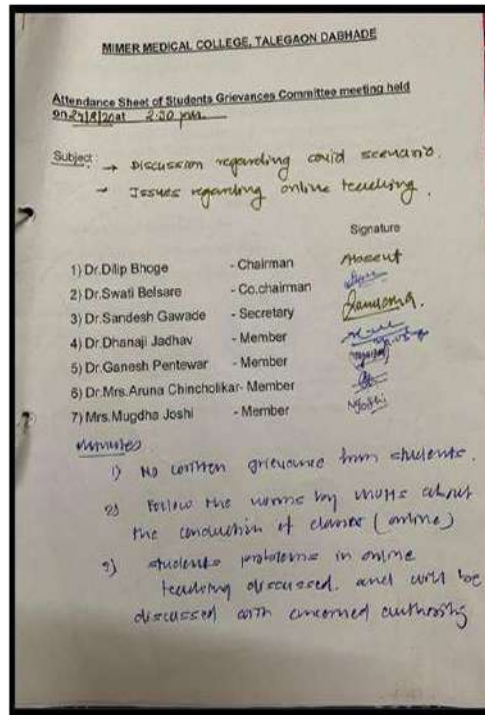 MIMER MEDICAL COLLEGE, TALEGAON DABHADE
Attendance Sheet of Students Grievances Committee meeting held
on 24/8/20 at 2.30 pm.
Subject: → Discussion regarding covid scenario.
→ Issues regarding online teaching.
Signature
1) Dr.Dilip Bhoge - Chairman Absent
2) Dr.Swati Belsare - Co.chairman
3) Dr.Sandesh Gawade - Secretary
4) Dr.Dhanaji Jadhav - Member
5) Dr.Ganesh Pentewar - Member
6) Dr.Mrs.Aruna Chincholikar- Member
7) Mrs.Mugdha Joshi - Member MJoshi
Minutes
1) No written grievance from students.
2) Follow the norms by MUHS about
the conduction of classes (online)
3) students problems in online
teaching discussed. and will be
discussed with concerned authority